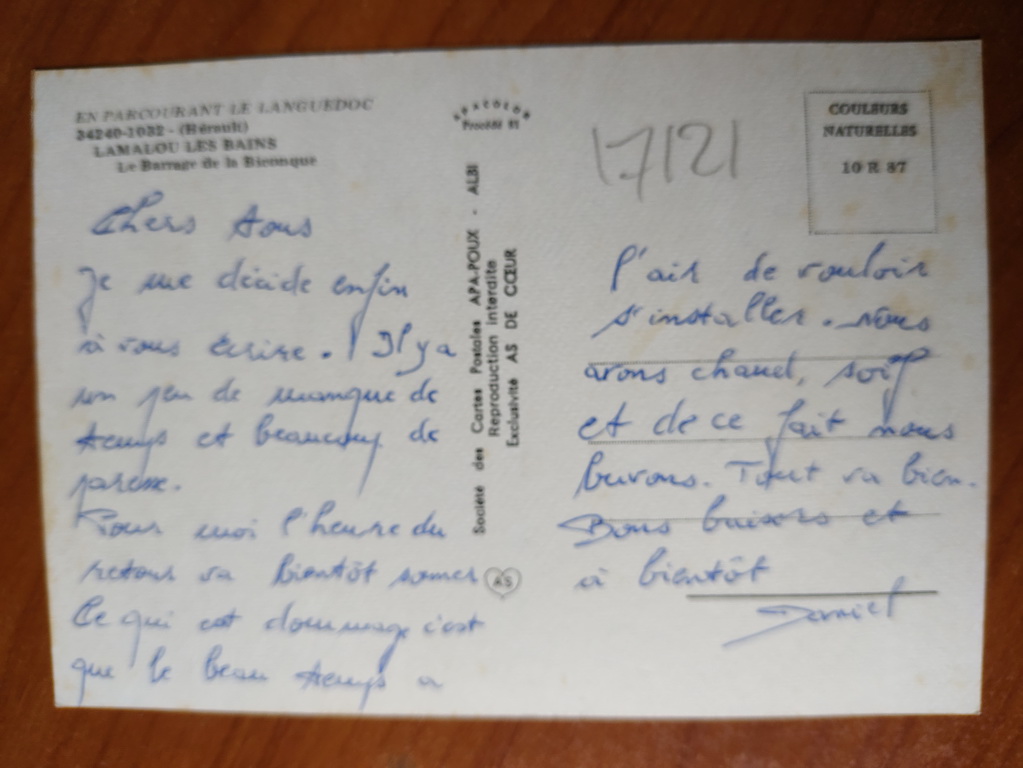 EN PARCOURANT LE LANGUEDOC
34240-1032 - (Hérault)
LAMALOU LES BAINS
Le Barrage de la Bienque
Chers tous
Je me décide enfin
à vous écrire. Il y a
un peu de manque de
temps et beaucoup de
paresse.
Pour moi l'heure du
retour va bientôt sonner
Ce qui est dommage c'est
que le beau temps a
APACOLOR
Procédé
Société des Cartes Postales APA-POUX - ALBI
Reproduction interdite
Exclusivité AS DE CŒUR
AS
17121
COULEURS
NATURELLES
10 R 87
l'air de vouloir
s'installer. Nous
avons chaud, soif
et de ce fait nous
buvons. Tout va bien.
Bons baisers et
à bientôt
Daniel